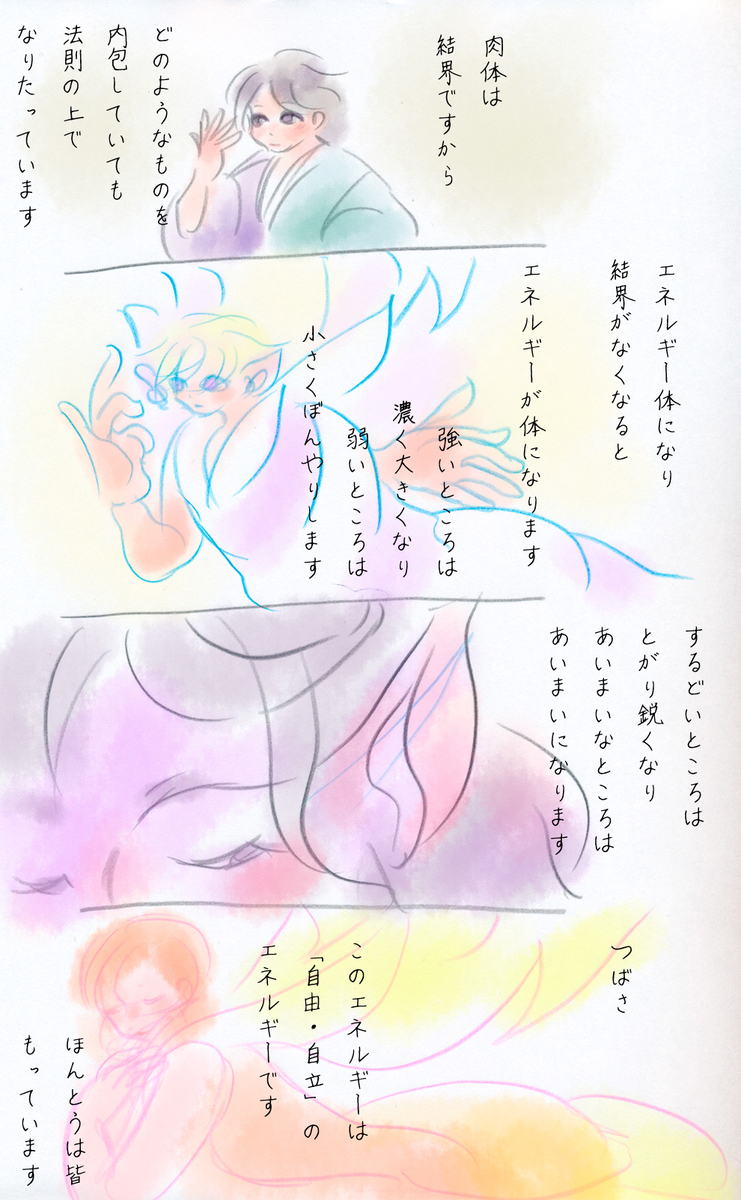 肉体は
結界ですから
どのようなものを
内包していても
法則の上で
なりたっています
エネルギー体になり
結界がなくなると
エネルギーが体になります
強いところは
濃く大きくなり
弱いところは
小さくぼんやりします
するどいところは
とがり鋭くなり
あいまいなところは
あいまいになります
つばさ
このエネルギーは
「自由・自立」の
エネルギーです
ほんとうは皆
もっています